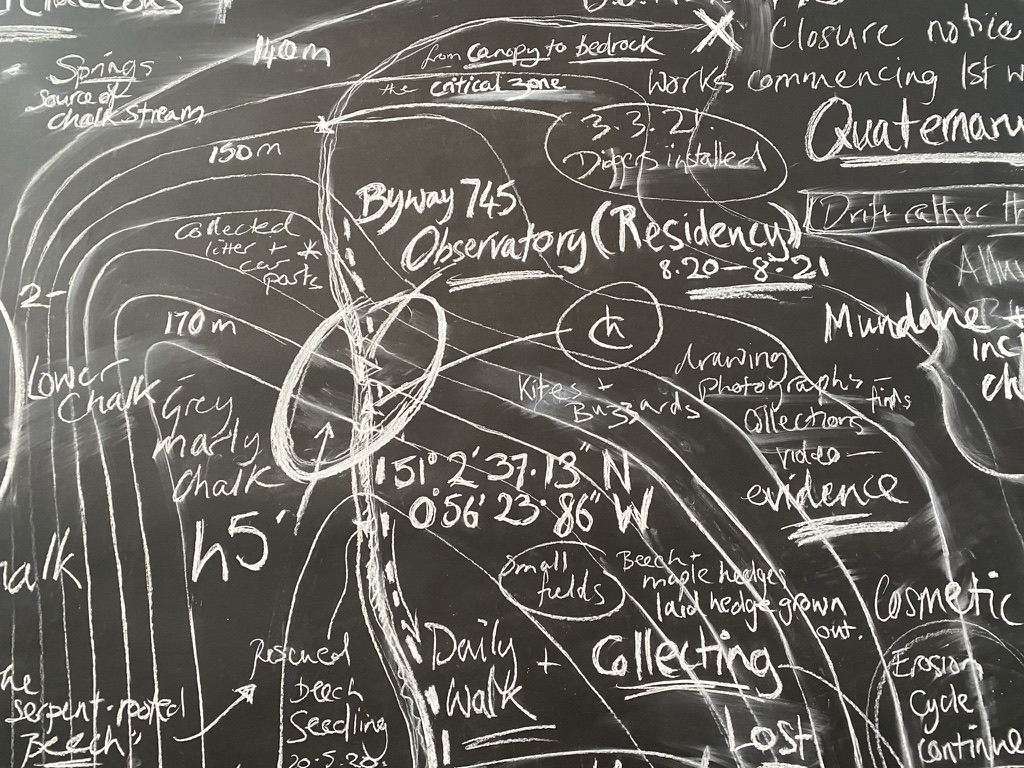 140m
from canopy to bedrock
the critical zone
Closure notice
Works commencing 1st
Quaternary
Springs
Source of
chalk stream
3.3.21.
Dippers installed
150m
Byway 745
Observatory (Residency)
8.20 – 8.21
Drift rather
collected
litter + *
car
parts
2-
170m
Lower
Chalk
Grey
marly
chalk
h5'
ch
Mundane
Kites +
Buzzards
drawing
photographs –
finds
Collections
video –
evidence
51° 2' 37.13" N
0°56' 23.86" W
small
fields
Beech +
maple hedges
laid hedge grown
out.
Cosmetic
Erosion
Cycle
continue
Daily
Walk
+ Collecting
Lost
Rescued
beech
Seedling
20.5.20.
serpent-rooted
Beech"